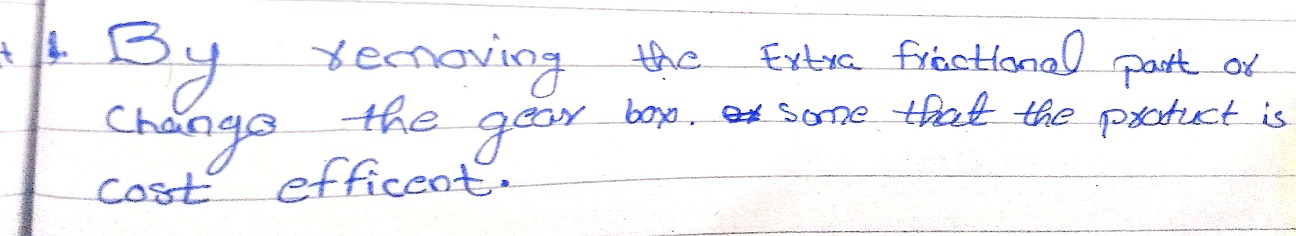 1. By removing the Extra frictional part or
Change the gear box. some that the product is
cost efficent.